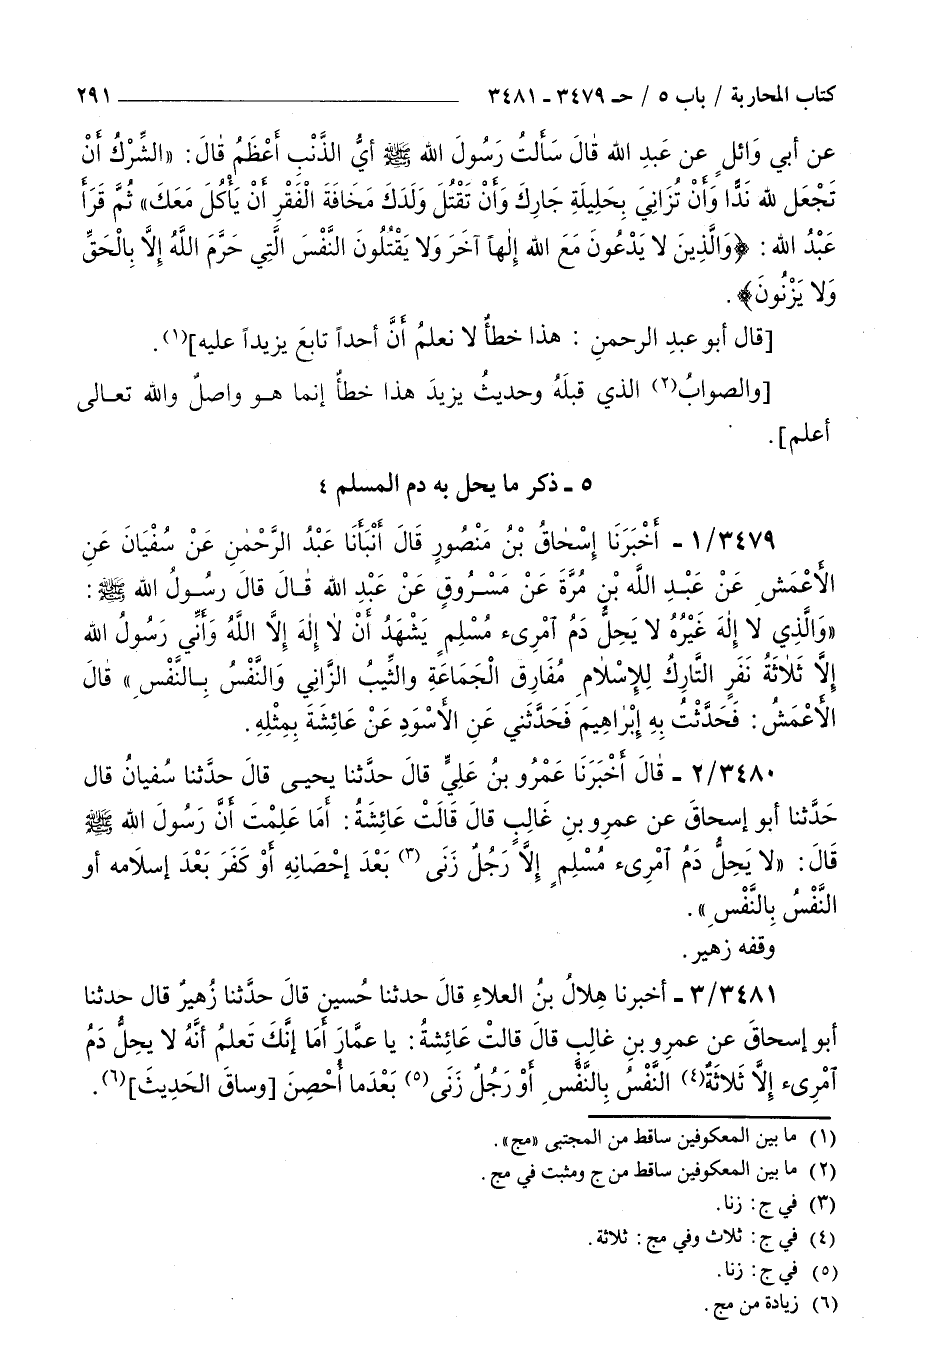 كتاب المحاربة / باب ٥ / حـ ٣٤٧٩ - ٣٤٨١ ٢٩١
عن أبي وَائلٍ عن عَبدِ الله قَالَ سَأَلتُ رَسُولَ الله ﷺ أيُّ الذَّنْبِ أَعْظَمُ قَالَ: «الشِّرْكُ أَنْ
تَجْعَل لله نَدًّا وَأَنْ تُزَانِيَ بِحَلِيلَةِ جَارِكَ وَأَنْ تَقْتُلَ وَلَدَكَ مَخَافَةَ الْفَقْرِ أَنْ يَأْكُلَ مَعَكَ» ثُمَّ قَرَأَ
عَبْدُ الله: ﴿وَالَّذِينَ لا يَدْعُونَ مَعَ الله إِلٰهاً آخَرَ وَلا يَقْتُلُونَ النَّفْسَ الَّتِي حَرَّمَ اللَّهُ إِلَّا بِالْحَقِّ
وَلا يَزْنُونَ﴾.
[قال أبو عبدِ الرحمنِ: هذا خطأٌ لا نعلمُ أَنَّ أحداً تابعَ يزيداً عليه](١).
[والصوابُ(٢) الذي قبلَهُ وحديثُ يزيدَ هذا خطأٌ إنما هـو واصلٌ والله تعـالى
أعلم].
٥ - ذكر ما يحل به دم المسلم ٤
١/٣٤٧٩ - أَخْبَرَنَا إِسْحٰاقُ بْنُ مَنْصُورٍ قَالَ أَنْبَأَنَا عَبْدُ الرَّحْمٰنِ عَنْ سُفْيَانَ عَنِ
الْأَعْمَشِ عَنْ عَبْـدِ اللَّهِ بْنِ مُرَّةَ عَنْ مَسْـرُوقٍ عَنْ عَبْدِ الله قَـالَ قالَ رسُـولُ الله ﷺ:
«وَالَّذِي لا إِلٰهَ غَيْرُهُ لا يَحِلُّ دَمُ آمْرِىءٍ مُسْلِمٍ يَشْهَدُ أَنْ لٰا إِلٰهَ إِلَّا اللَّهُ وَأَنِّي رَسُولُ الله
إِلَّا ثَلٰاثَةُ نَفَرٍ التَّارِكُ لِلإِسْلٰامِ مُفَارِق الْجَمَاعَةِ والثَّيبُ الزَّانِي وَالنَّفْسُ بِـالنَّفْسِ» قٰالَ
الْأَعْمَشُ: فَحَدَّثْتُ بِهِ إِبْرَاهِيمَ فَحَدَّثَنِي عَنِ الْأَسْوَدِ عَنْ عَائِشَةَ بِمِثْلِهِ.
٢/٣٤٨٠ - قَالَ أَخْبَرَنَا عَمْرُو بنُ عَلِيٍّ قالَ حدَّثنا يحيـى قالَ حدَّثنا سُفيانُ قال
حَدَّثنا أبو إسحَاقَ عن عمرِو بنِ غالِبٍ قالَ قَالَتْ عَائِشَةُ: أَمَا عَلِمْتَ أَنَّ رَسُولَ الله ﷺ
قَالَ: «لا يَحِلُّ دَمُ آمْرِىءٍ مُسْلِمٍ إِلَّا رَجُلٌ زَنَى(٣) بَعْدَ إحْصَانِهِ أَوْ كَفَرَ بَعْدَ إسلَامه أو
النَّفْسُ بِالنَّفْسِ».
وقفه زهير.
٣/٣٤٨١ - أخبرنا هِلالُ بنُ العلاءِ قالَ حدثنا حُسينٍ قالَ حدَّثنا زُهيرٌ قال حدثنا
أبو إسحَاقَ عن عمرِو بنِ غالِبٍ قالَ قالتْ عَائِشةُ: يا عمَّارَ أَمَا إنَّكَ تَعلمُ أنَّهُ لا يحِلُّ دَمُ
آمْرِىءٍ إِلَّا ثَلاثَةٌ(٤) النَّفْسُ بِالنَّفْسِ أَوْ رَجُلٌ زَنَى(٥) بَعْدَما أُحْصِنَ [وساقَ الحَدِيثَ](٦).
(١) ما بين المعكوفين ساقط من المجتبى «مج».
(٢) ما بين المعكوفين ساقط من ج ومثبت في مج.
(٣) في ج: زنا.
(٤) في ج: ثلاث وفي مج: ثلاثة.
(٥) في ج: زنا.
(٦) زيادة من مج.